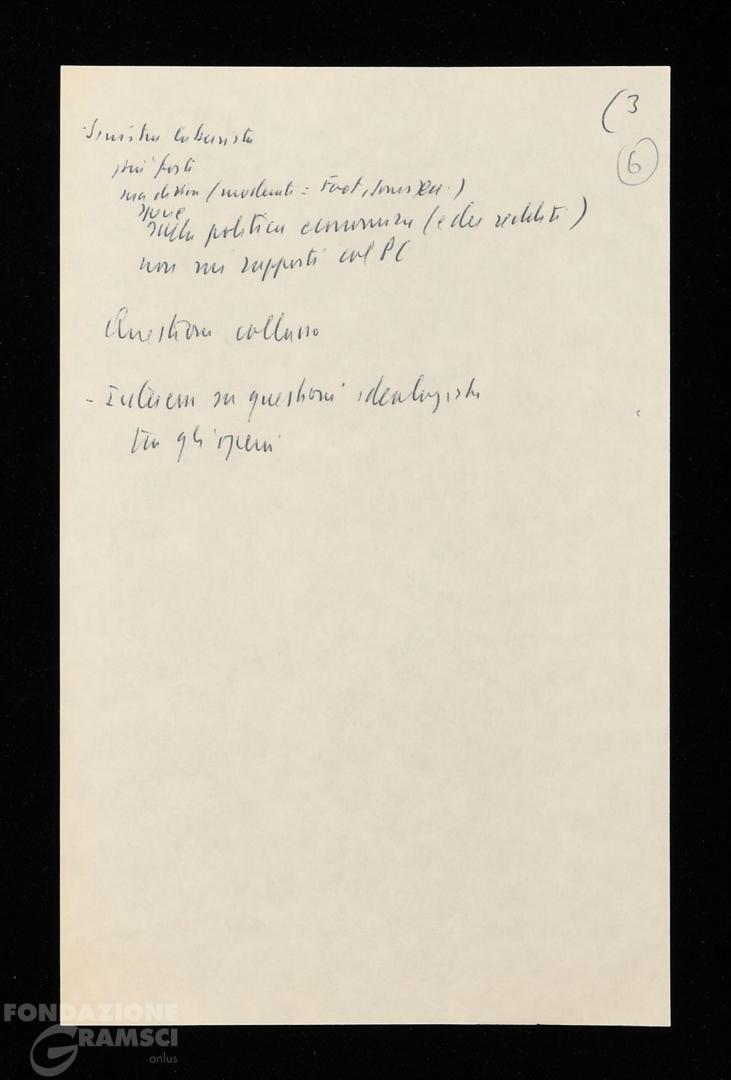 (3
6
Sinistra laburista
più forte
ma divisa (moderati = Foot, Jones)
sulla politica economica (e dei redditi)
non sui rapporti col PC
Questione collasso
- Interesse su questioni ideologiche
tra gli operai
FONDAZIONE
GRAMSCI
onlus